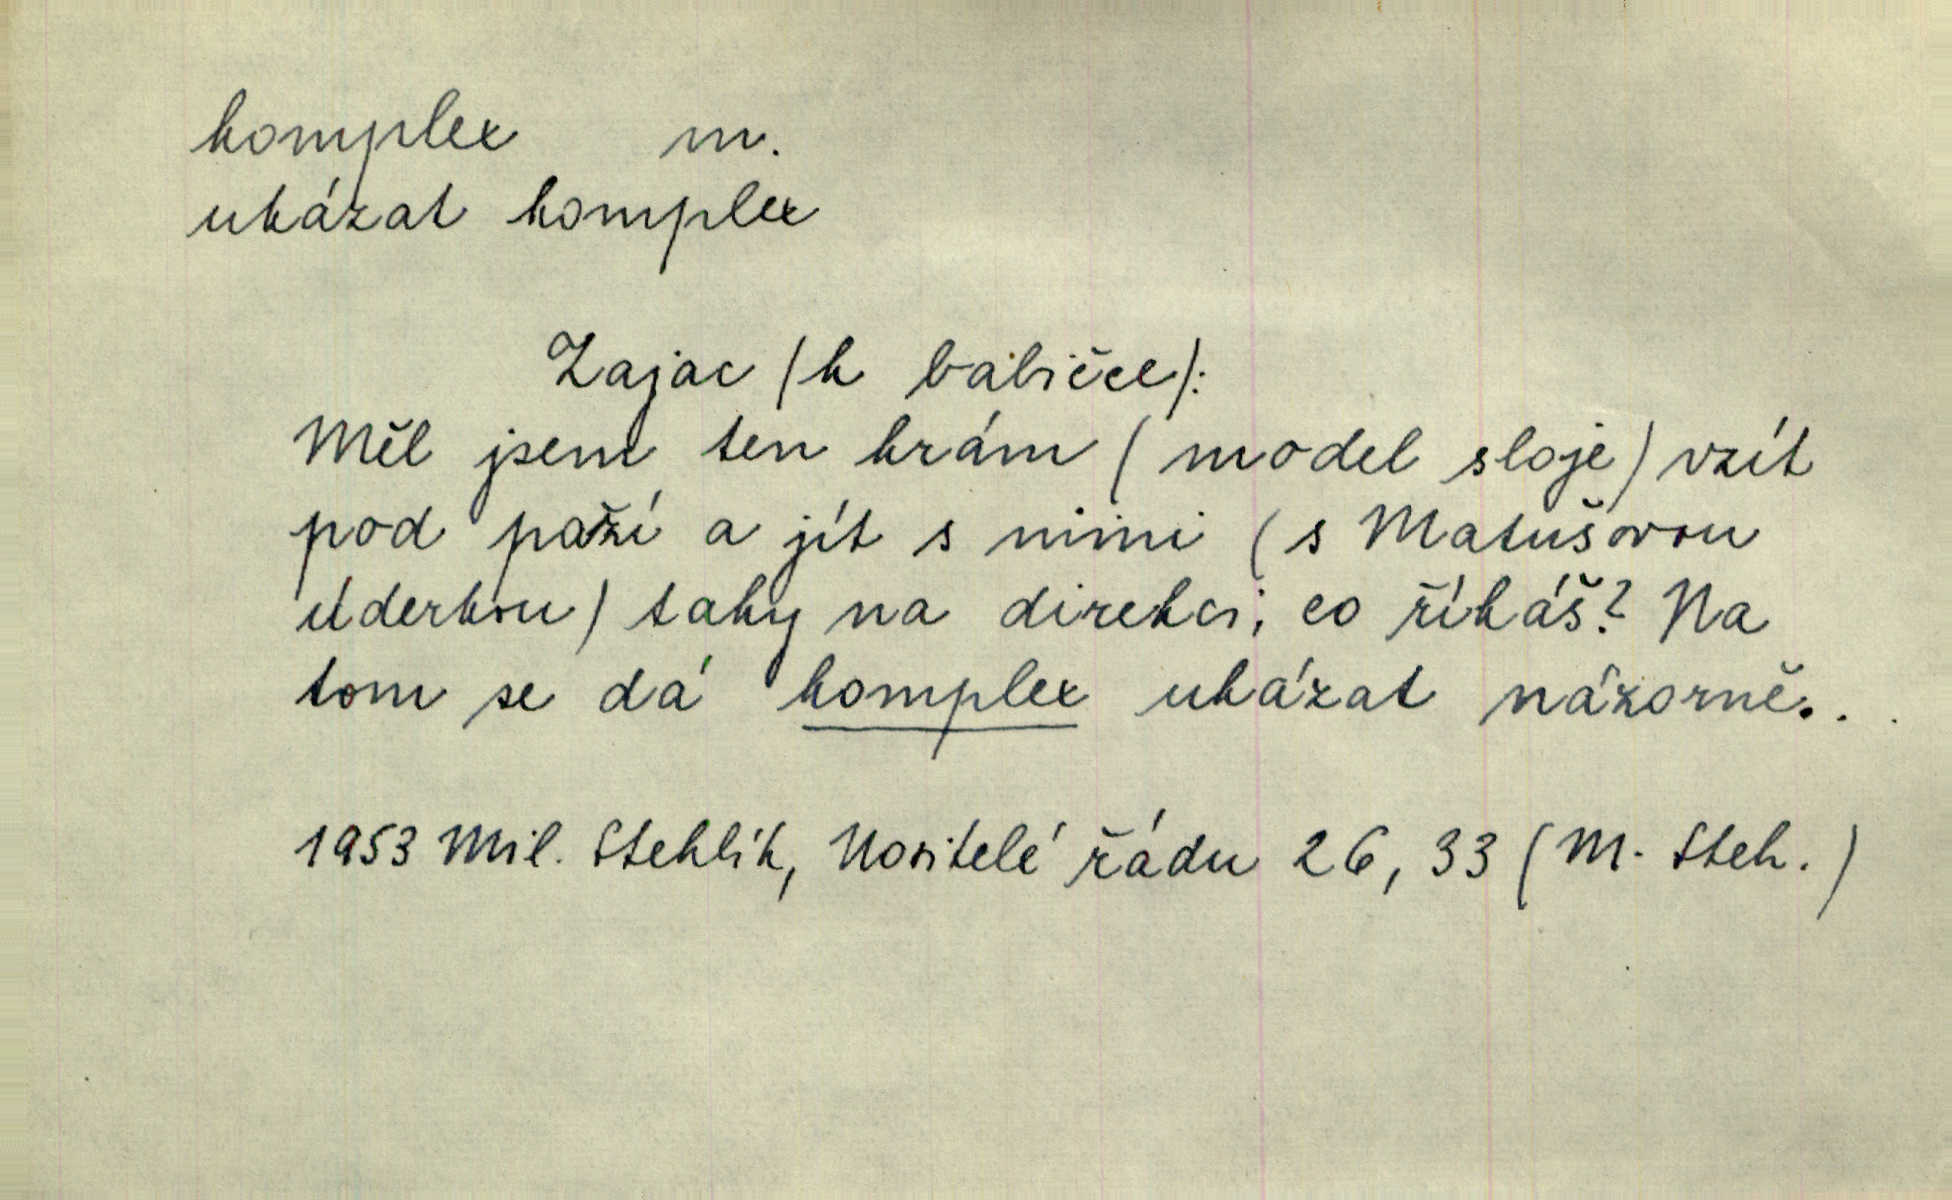 komplex m.
ukázat komplex
Zajac (k babičce):
Měl jsem ten krám (model sloje) vzít
pod paží a jít s nimi (s Matušovou
úderkou) taky na direkci, co říkáš? Na
tom se dá komplex ukázat názorně..
1953 Mil. Stehlík, Nositelé řádu 26, 33 (M. Steh.)